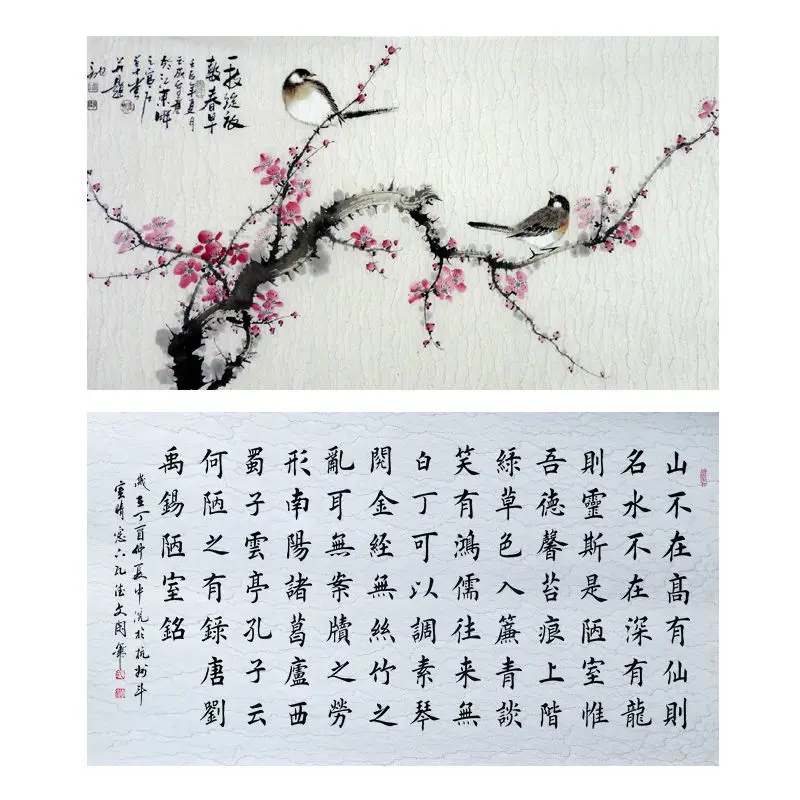 一枝綻放
報春早
山不在髙有仙則
名水不在深有龍
則靈斯是陋室惟
吾德馨苔痕上階
緑草色入簾青談
笑有鴻儒往来無
白丁可以調素琴
閱金經無絲竹之
亂耳無案牘之勞
形南陽諸葛廬西
蜀子雲亭孔子云
何陋之有錄唐劉
禹錫陋室銘
歲在丁酉仲夏中浣於杭州斗
室晴窗